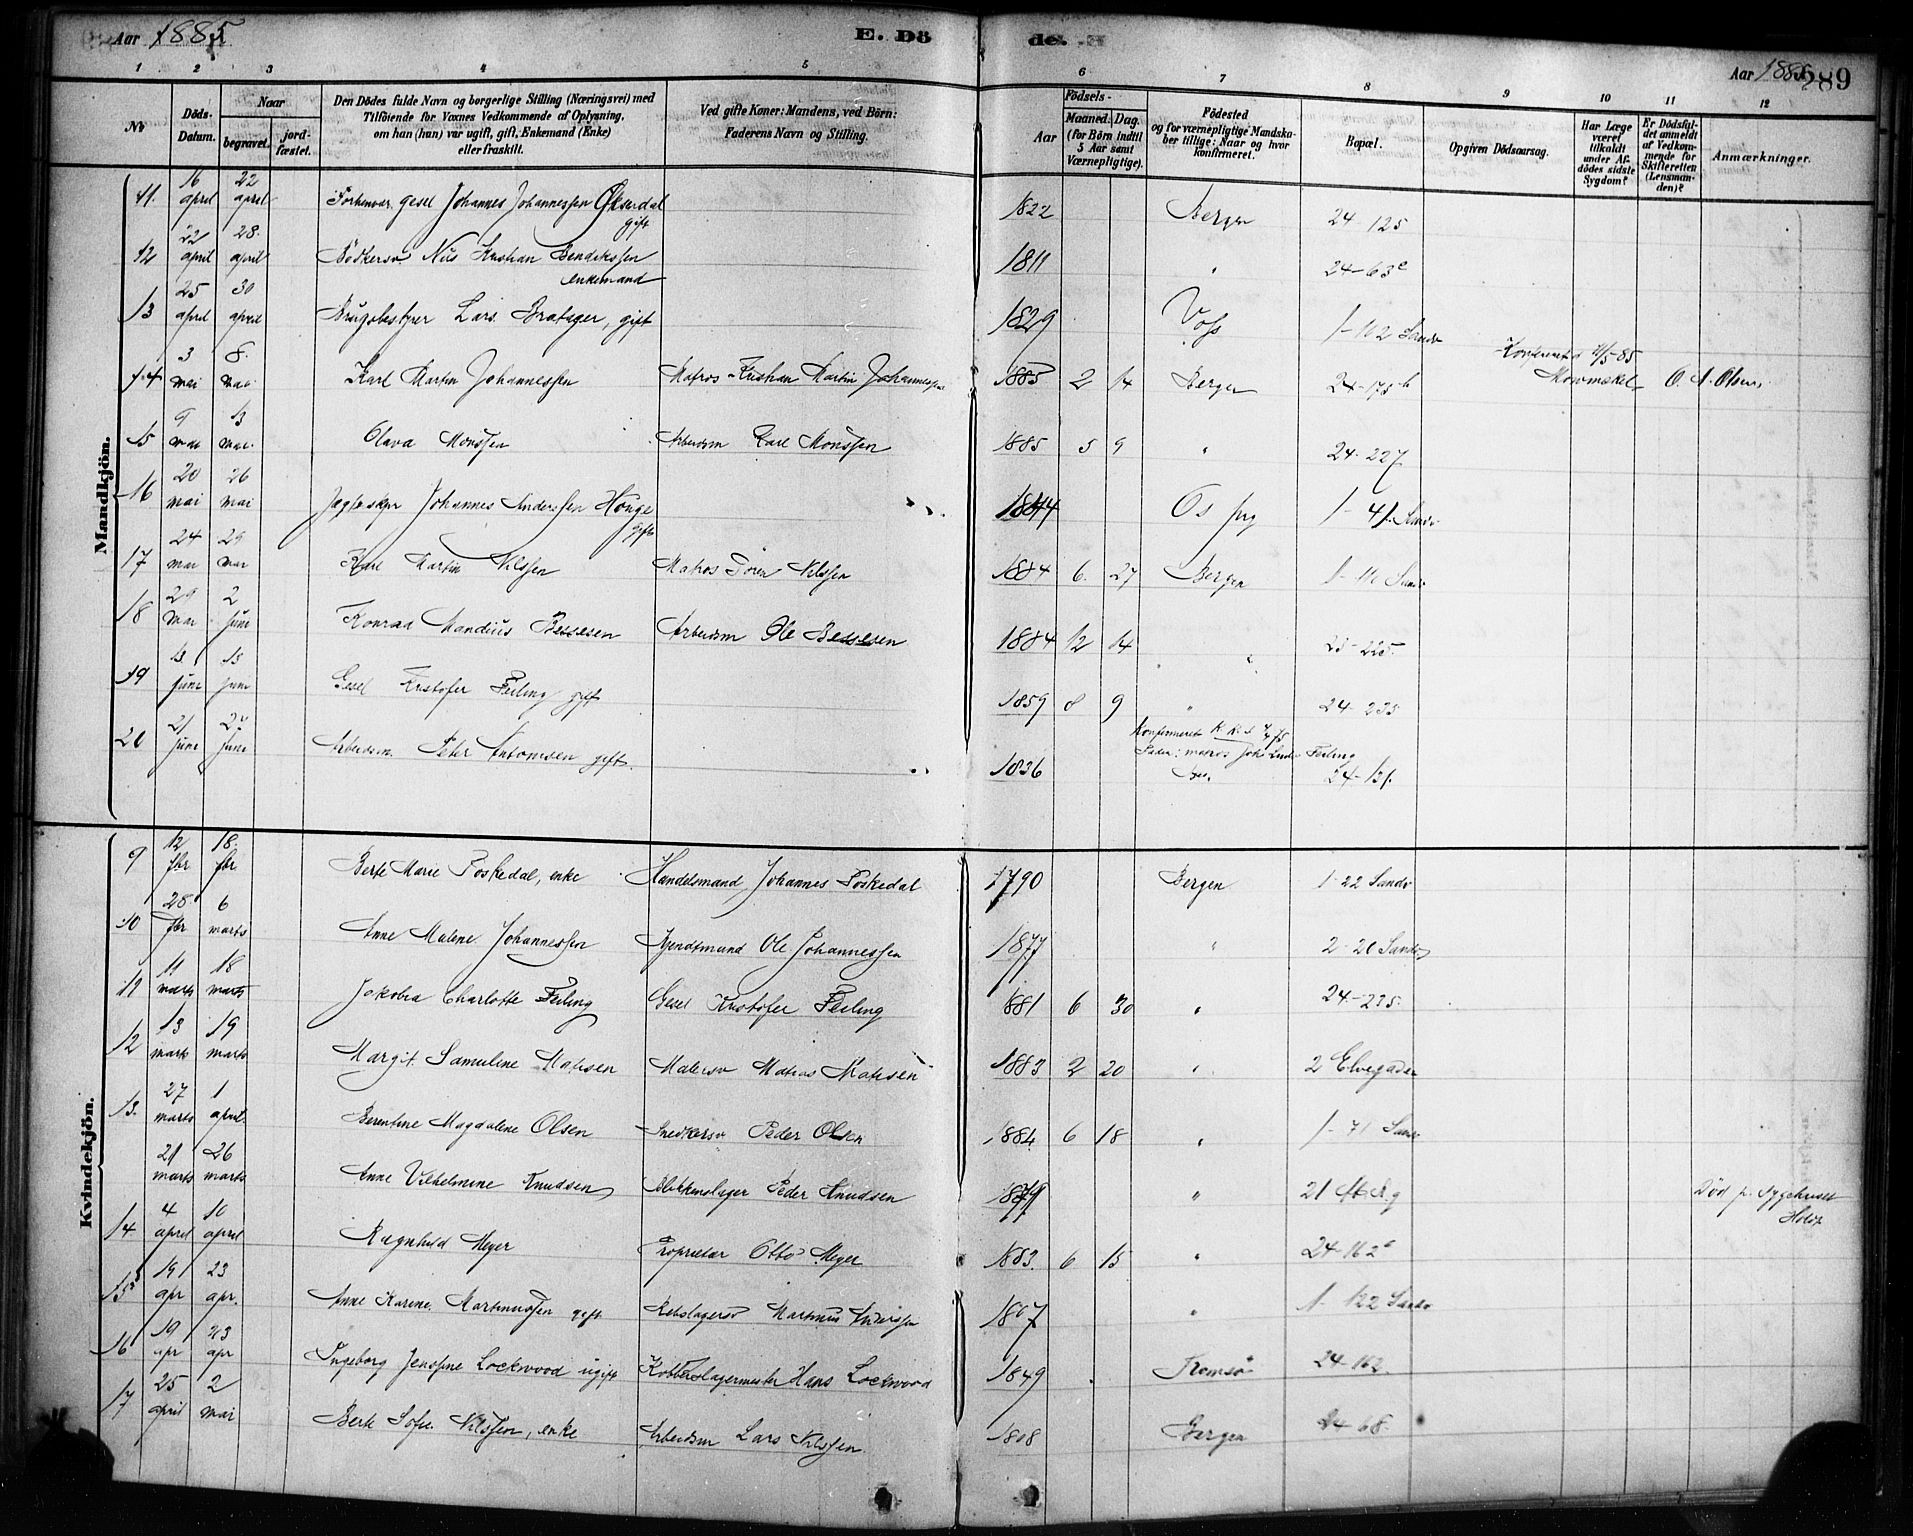 Aar 1885
E. Dö
de.
Aar 1885
289
1 2 3 4 5 6 7 8 9 10 11 12
No
Döds-Datum.
Naar
begravet.
jord-fæstet.
Den Dödes fulde Navn og borgerlige Stilling (Næringsvei) med
Tilföiende for Voxnes Vedkommende af Oplysning,
om han (hun) var ugift, gift, Enkemand (Enke)
eller fraskilt.
Ved gifte Koner: Mandens, ved Börn:
Faderens Navn og Stilling.
Födsels-
Aar
Maaned. Dag.
(for Börn indtil
5 Aar samt
Værnepligtige).
Födested
og for værnepligtige Mandska-
ber tillige: Naar og hvor
konfirmeret.
Bopæl.
Opgiven Dödsaarsag.
Har Læge
været
tilkaldt
under Af-
dödes sidste
Sygdom?
Er Dödsfal-
det anmeldt
af Vedkom-
mende for
Skifteretten
(Lensman-
den)?
Anmærkninger.
Mandkjön.
11. 16 april 22 april Johannes Johannessen gift 1822 Bergen 24-125
12 22 april 28. april Kristian Bendikssen enkemand 1811 " 24-63c
13 25 april 30 april Lars Bratager, gift 1829 Voss 1-102 Sandv
14 3 mai 8. mai Karl Martin Johannessen Matros Kristian Martin Johannessen 1885 2 14 Bergen 24-175b O. A. Olsen
15 9 mai 13 mai Olava Monssen Arbeidsm Karl Monssen 1885 5 9 " 24-227
16 20 mai 26 mai Johannes Anderssen Hauge gift 1844 Os 1-41 Sandv
17 24 mai 29 mai Karl Martin Nilssen Matros Sören Nilssen 1884 6. 27 Bergen 1-110 Sandv
18 29 mai 2 juni Konrad Mandius Bessesen Arbeidsm Ole Bessesen 1884 12 14 " 23-225.
19 13 juni 15 juni Gesel Kristofer Feiling gift 1859 8 9 " 24-235
Konfirmeret
Feiling
20 21 juni 27 juni Arbeidsm. Peter Antonisen gift. 1836 24-131.
Kvindekjön.
9 12 fbr 18. fbr Berte Marie Foskedal, enke Handelsmand Johannes Foskedal 1790 Bergen 1-22 Sandv
10 28 fbr 6 marts Anne Malene Johannessen Ole Johannessen 1877 " 2-20 Sandv
11 11 marts 18 marts Jakobea Charlotte Feiling Gesel Kristofer Feiling 1881 6 30 " 24-235.
12 13 marts 19 marts Margit Samuline Matisen Malersv Matias Matisen 1883 2 20 " 2 Elvegaden
13. 27 marts 1 april. Berentine Magdalene Olsen Snedkersv Peder Olsen 1884 6 18 " 1-71 Sandv
21 marts 26 marts Anne Vilhelmine Knudsen Blikkenslager Peder Knudsen " 21 Död p. Sygehuset
14 4 april 10 april Ragnhild Meyer Proprietær Otto Meyer 1883. 6 15 " 24-162c
15 19 apr 23 apr. Anne Karine Martinussen gift Rebslagersv Martinus 1807 " 1-122 Sandv
16 19 apr 23 apr Ingeborg Jensine Lockwood ugift Kobberslagermester Hans Lockwood 1849 Tromsö 24-162.
17 25 april 2 mai Berte Sofie Nilssen, enke Arbeidsm Lars Nilssen. 1808 Bergen 24-68